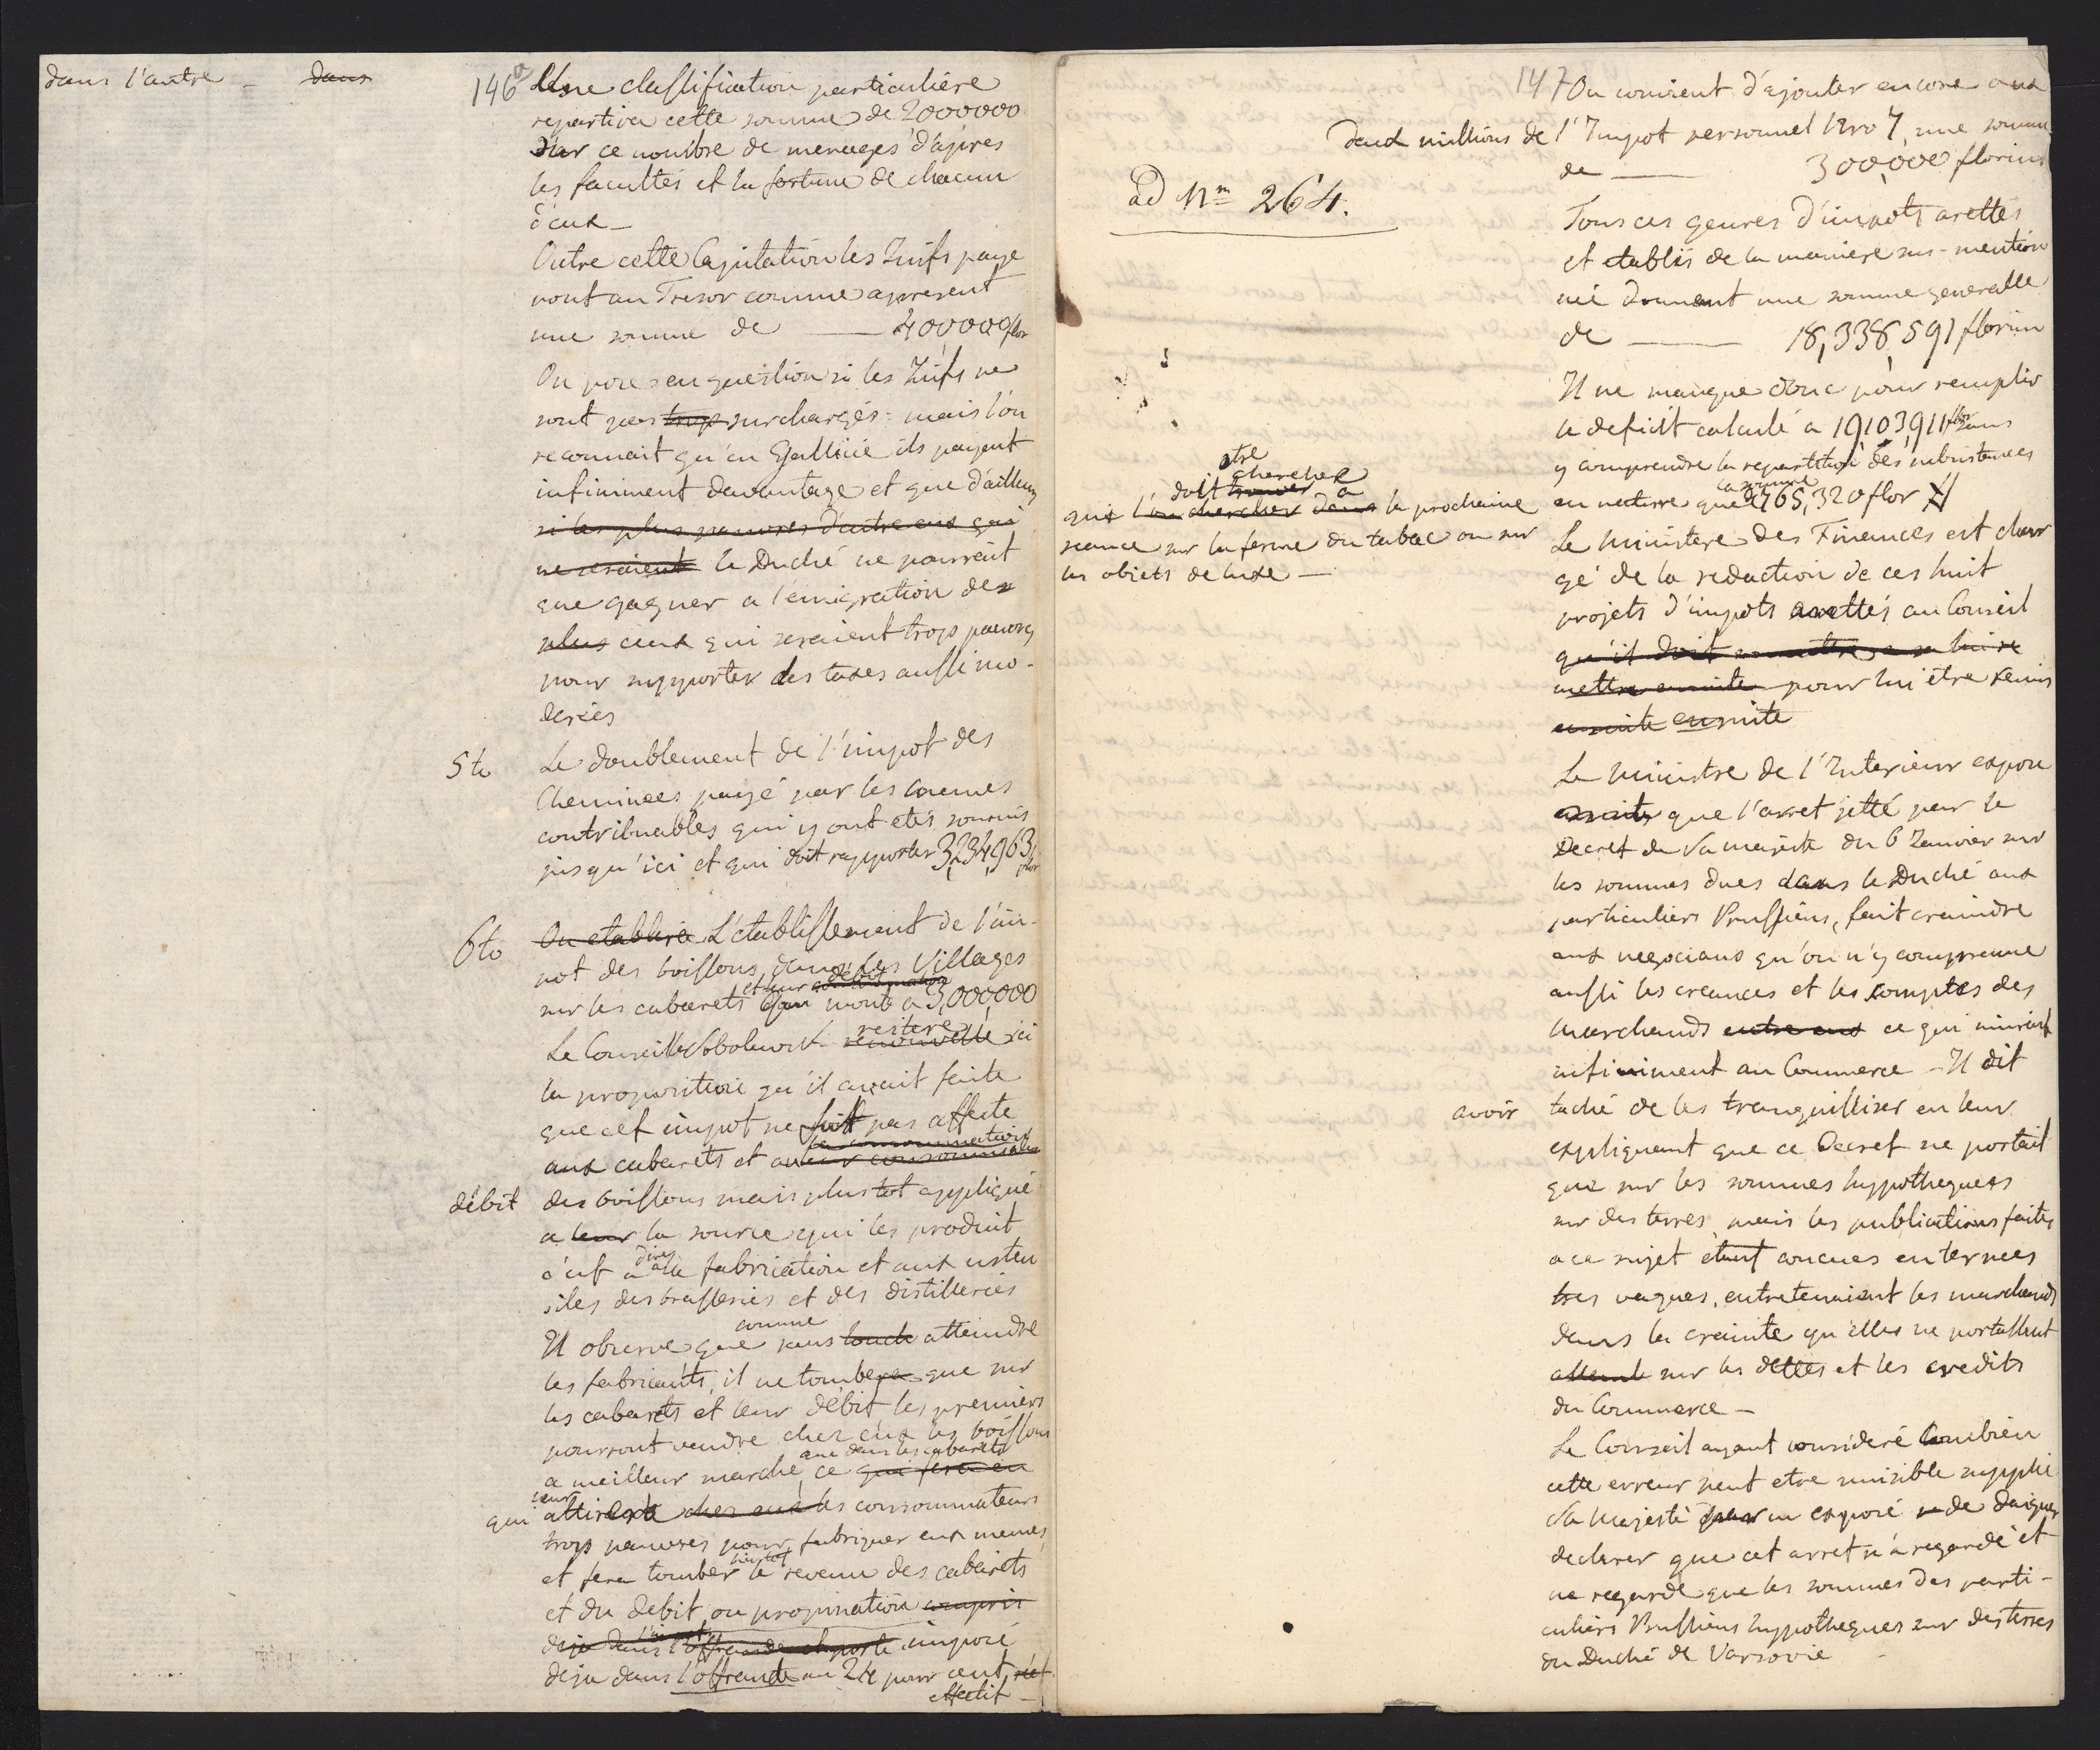 dans l'autre - dans
146a Une classification particulière
repartira cette somme de 2000000
sur ce nombre de menages d'après
les facultés et la fortune de chacun
d'eux_
Outre cette Capitation les Juifs paye
ront au Tresor comme apresent
une somme de — 400000 flor
On pose en question si les Juifs ne
sont pas trop surchargés: mais l'on
reconnait qu'en Gallicie ils payent
infiniment davantage et que d'ailleurs
si les plus pauvres d'entre eux qui
ne seraient le Duché ne pourrait
que gagner a l'émigration des
plus ceux qui seraient trops pauvres
pour supporter des taxes aussi mo-
derées
5to Le doublement de l'impot des
Cheminees payé par les memes
contribuables qui y ont etés soumis
jusqu'ici et qui doit rapporter 3,234,963 flor
6to On etablira L'etablissement de l'im-
pot des boissons dans les Villages
et leur debit
sur les cabarets qui monte a 3,000,000
reitere
Le Conseiller Sobolewski renouvelle ici
la proposition qu'il avait faite
que cet impot ne soit pas affecte
la consommation
aux cabarets et au leur consommation
débit des boissons mais plustot appliqué
a leur la source qui les produit
dire
c'est a la fabrication et aux usten
siles des brasseries et des distilleries
comme
Il observe que sans touche atteindre
les fabricants, il ne tombera que sur
les cabarets et leur débit, les premiers
pourront vendre chez eux les boissons
que dans les cabarets
a meilleur marché, ce qui fera en
leur
qui attirera chez eux les consommateurs
trops pauvres pour fabriquer eux memes,
bientot
et fera tomber le revenu des cabarets
et du debit ou propination compris
l'impot
deja dans l'offrande imposé
deja dans l'offrande au 24 pour cent
effectif —
147 On convient d'ajouter encore aux
deux millions de l'Impot personnel Nro 7, une somme
de — 300,000 florins
ad Nm 264.
Tous ces genres d'impots arettes
et etablis de la maniere sus-mention
née donnent une somme generalle
de — 18,338,591 florin
Il ne manque donc pour remplir
le deficit calculé a 19,103,911 flor sans
y comprendre la repartition des subsistances
la somme
en nature que 765,320 flor #
etre
chercher
doit trouver a
que l'on chercher dans la prochaine
seance sur la ferme du tabac ou sur
les objets de luxe —
Le Ministere des Finances est char
gé de la redaction de ces huit
projets d'impots arettés au Conseil
qu'il doit soumettre
mettre ensuite pour lui être remis
ensuite ensuite
Le Ministre de l'Interieur expose
ensuite que l'arret jetté par le
Decret de Sa Majesté du 6 Janvier sur
les sommes dues dans le Duché aux
particuliers Prussiens, fait craindre
aux negocians qu'on n'y comprenne
aussi les creances et les comptes des
Marchands entre eux ce qui nuirait
infiniment au Commerce - Il dit
avoir taché de les tranquilliser en leur
expliquant que ce Decret ne portait
que sur les sommes hypothequees
sur des terres, mais les publications faites
a ce sujet étant concues en termes
tres vagues, entretenaient les marchands
dans la crainte qu'elles ne portassent
atteinte sur les dettes et les credits
du Commerce —
Le Conseil ayant consideré Combien
cette erreur peut etre nuisible supplie
Sa Majesté par un exposé de daigner
declarer que cet arret n'a regardé et
ne regarde que les sommes des parti-
culiers Prussiens hypotheques sur des terres
du Duché de Varsovie